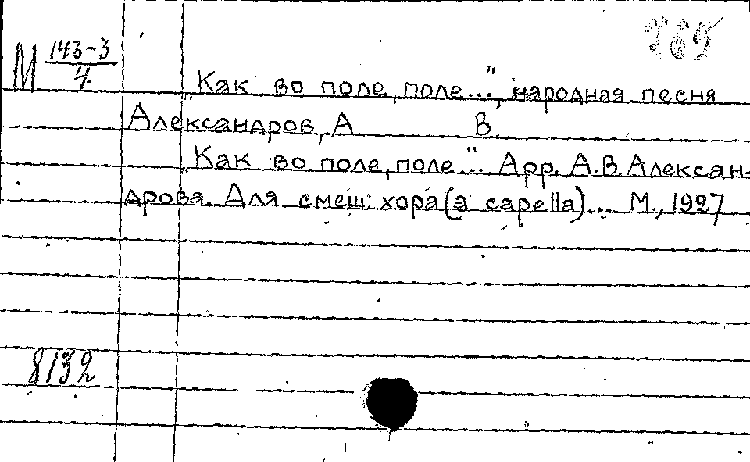 265
М 143-3
4
„Как во поле, поле...", народная песня
Александров, А В.
„Как во поле, поле"... Арр. А.В. Алексан-
дрова. Для смеш. хора (a capella)... М., 1927
8132